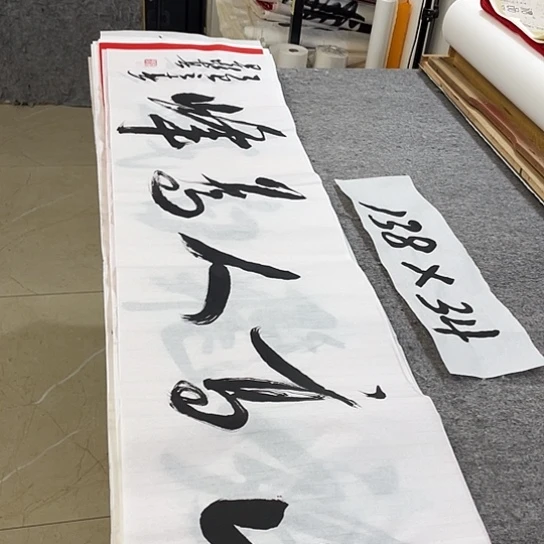 山高人为峰
138×34